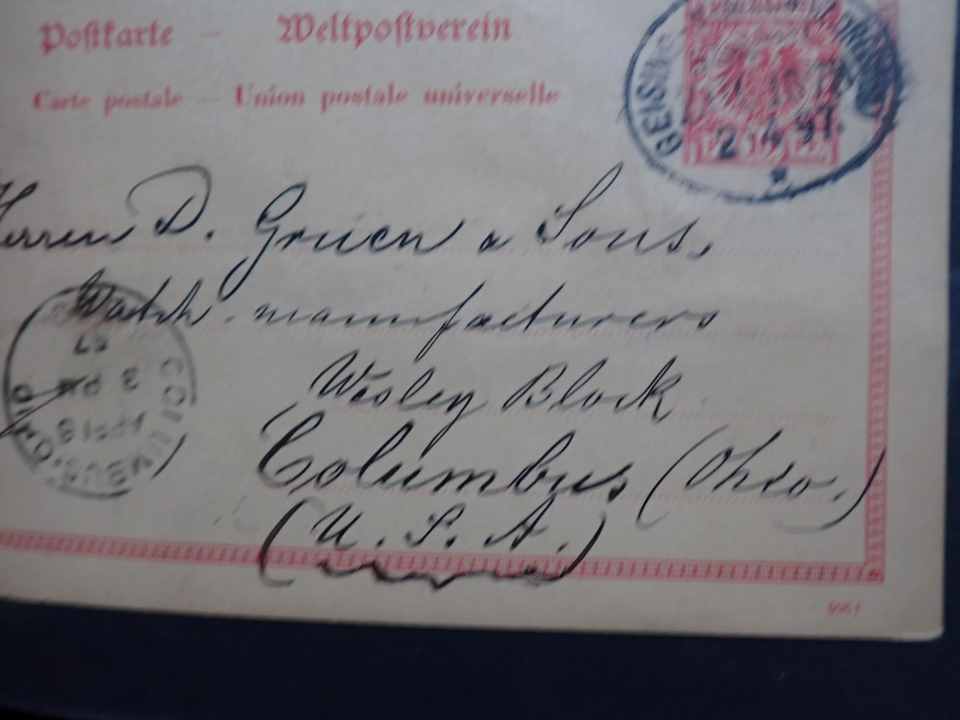 Postkarte — Weltpostverein
Carte postale — Union postale universelle
GEISING
2 4 97.
Herren D. Gruen & Sons,
Watch-manufacturers
Wesley Block
Columbus (Ohio.)
(U. S. A.)
COLUMBUS, OHIO
APR 13
3 PM
97